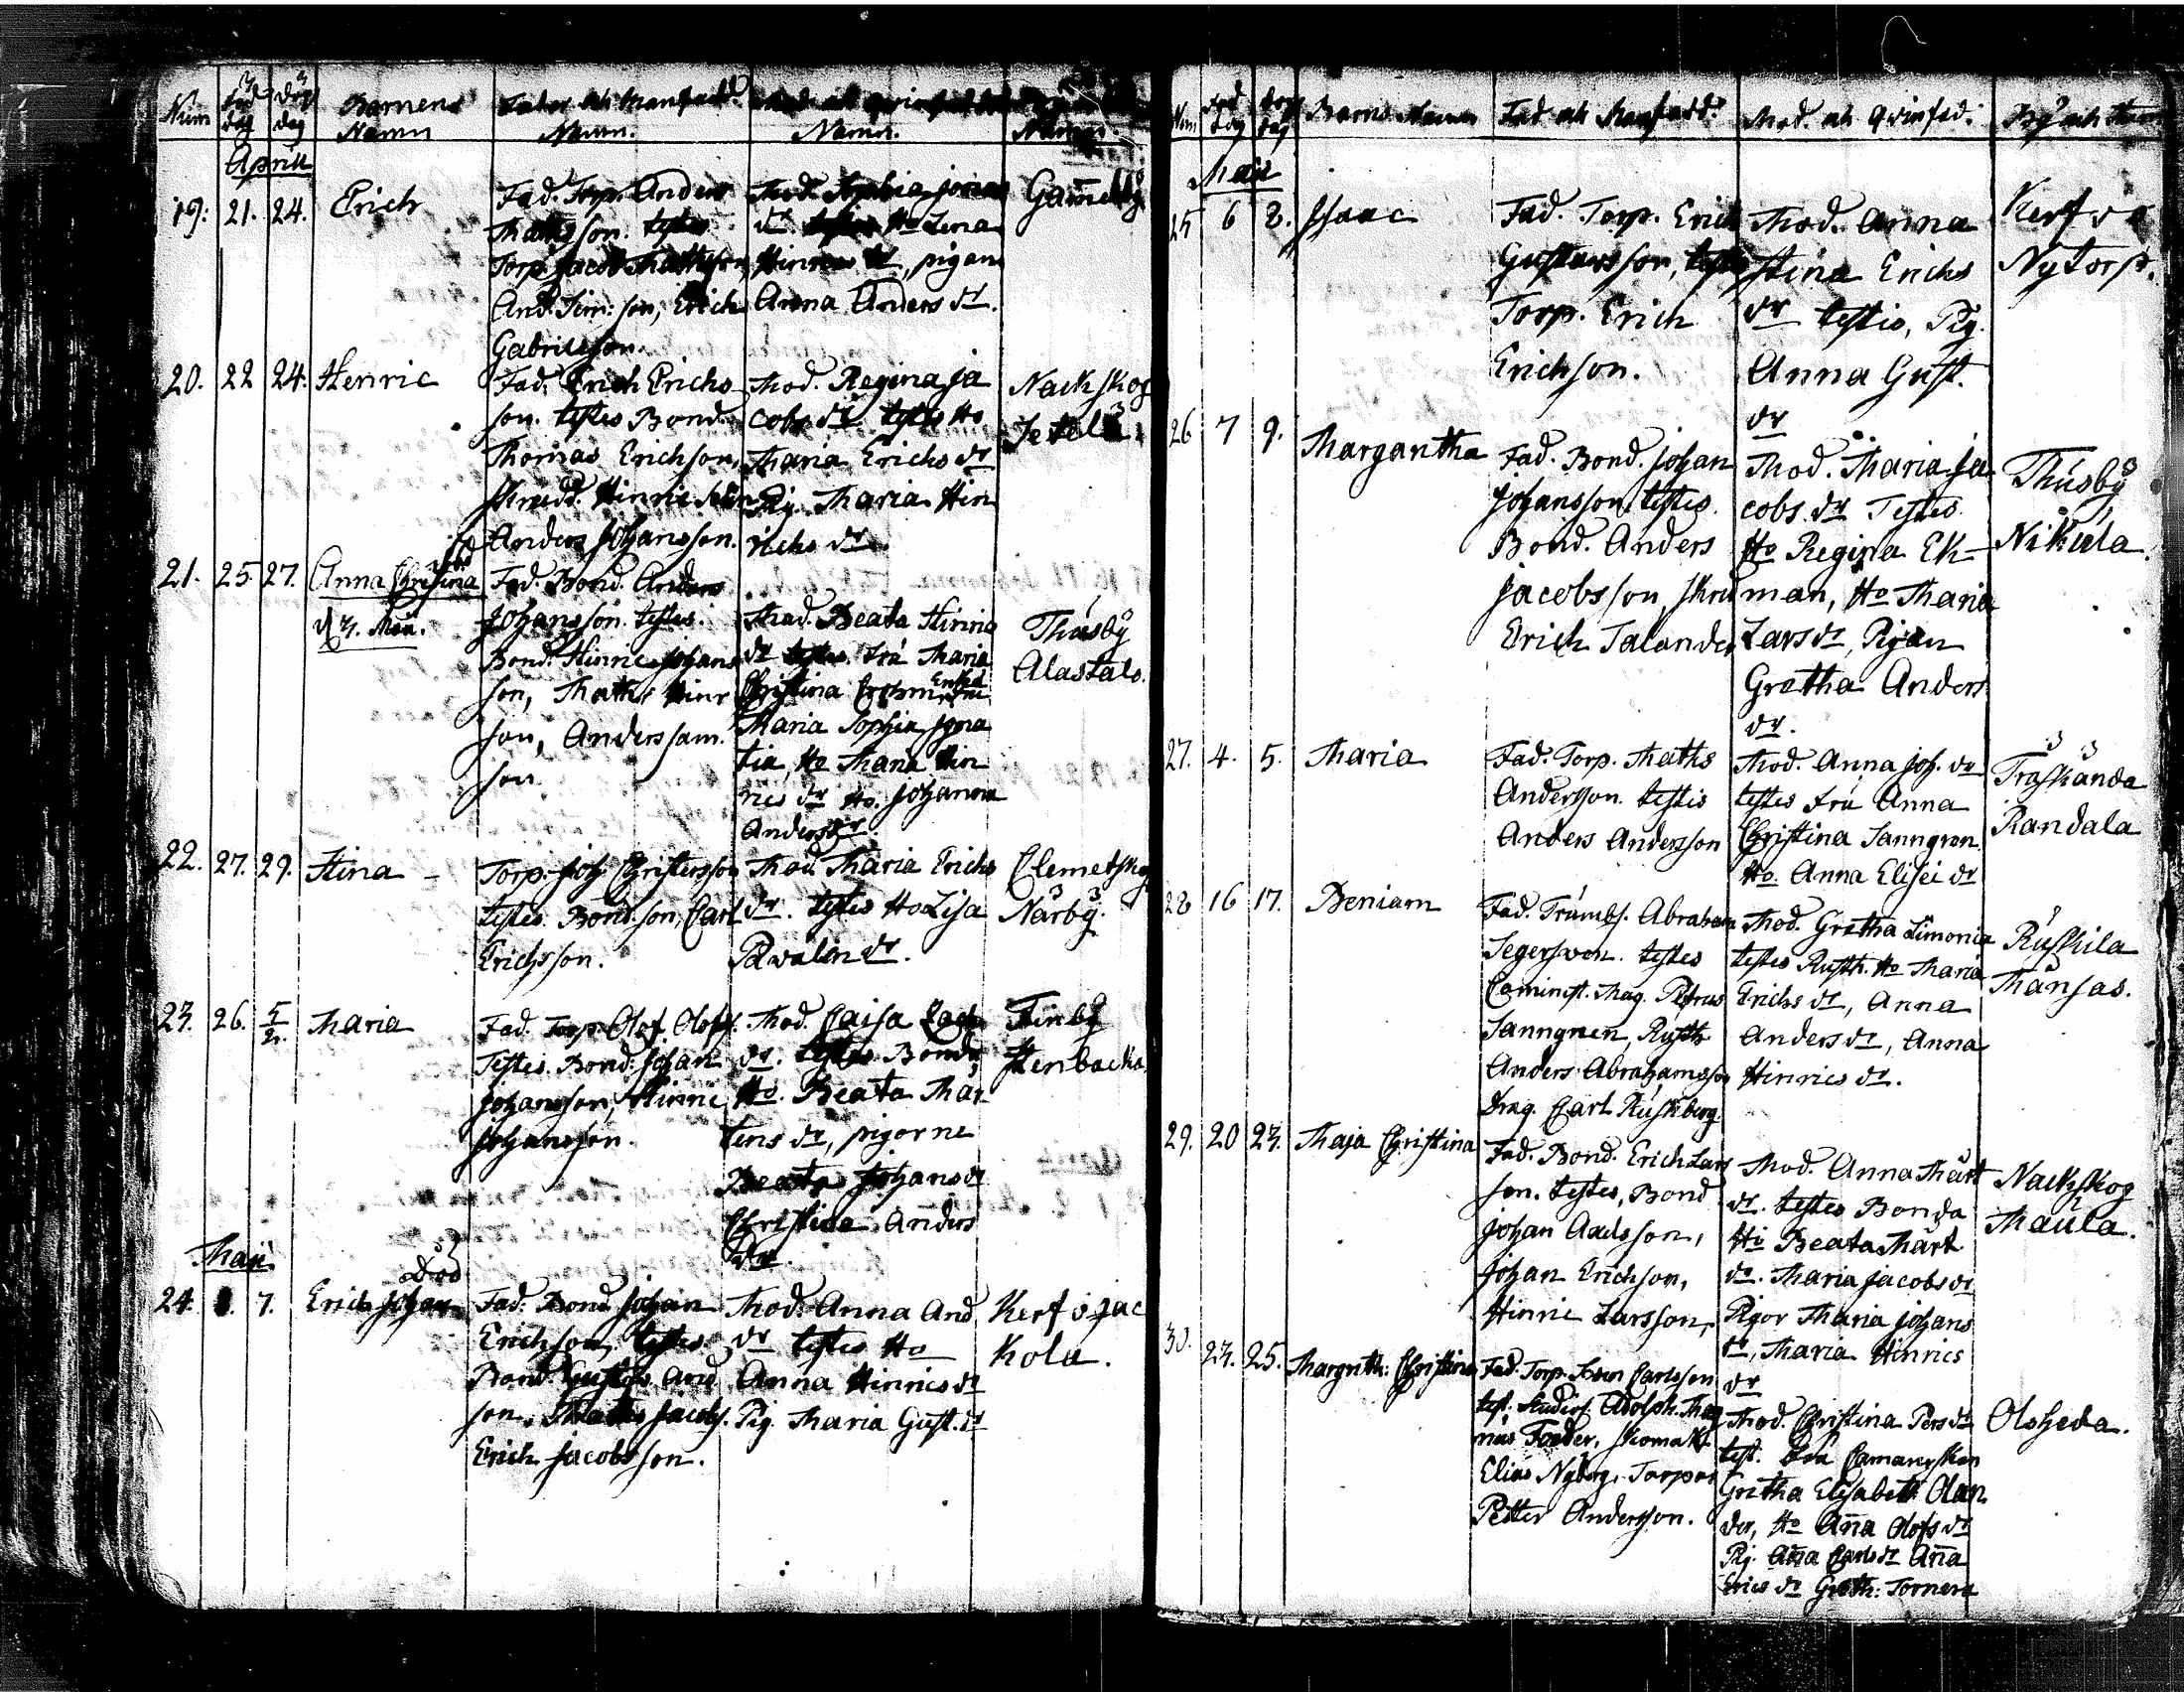 Num
Föd dag
Döp dag
Barnens Namn
Fader och Manfadd.
Namn.
Namn.
Namn.
Aprill
19. 21. 24. Erich
Fad. Torp. Anders
Mathsson. testes
Torp. Jacob Mathsson
And. Sim: son, Erich
Gabrielsson.
Mod. Sophia Jonas
dr. testes Ho Lena
Hinrics dr, pigan
Anna Anders dr.
Gameelby
20. 22 24. Henric
Fad. Erich Erichs
son. testes Bond.
Thomas Erichson,
Skredd. Hinric
Anders Johansson.
Mod. Regina Ja
cobs dr testes Ho
Maria Erichs dr
Pig. Maria Hin
richs dr.
Nackskog
21. 25. 27. Anna Christina
död
d. 3. Maii.
Fad. Bond. Anders
Johansson. testes.
Bond. Hinric Johans
son, Maths Hinr
son, Anders sam.
son.
Mod. Beata Hinric
dr testes. Fru Maria
Christina Enkef.
Maria Sophia
tia, Ho Maria Hin
rics dr Ho. Johanna
Anders dr.
Måsby
Alastalo.
22. 27. 29. Stina -
Torp. Joh Christersson
testes. Bond. son, Carl
Erichsson.
Mod. Maria Erichs
dr. testes Ho Lisa
Clemetskog
Närby.
23. 26. 5/2. Maria
Fad. Torp. Olof Olofs.
Testes. Bond. Johan
Johansson, Hinric
Johansson.
Mod. Caisa
dr. testes Bonda
Ho. Beata Mår
tens dr, pigorne
Beata Johans dr
Christina Anders
dr.
Finby
Stenbacka
Maji
död
24. 7. Erich Johan
Fad. Bond. Johan
Erichson, testes
Bond. Gustaf And
son, Maths Jacobs.
Erich Jacobsson.
Mod. Anna And
dr testes Ho
Anna Hinrics dr
Pig. Maria Gust. dr
Kola.
Num
Föd dag
Döp dag
Barns Namn
Fad och Manfadd.
Mod. och Qvinfad.
By och Hem
Maii
25 6 8. Isaac
Fad. Torp. Erich
Gustavsson, testis
Torp. Erich
Erichson.
Mod. Anna
Stina Erichs
dr testis, Pig.
Anna Gust.
dr
Nytorp.
26 7 9. Margaretha
Fad. Bond. Johan
Johansson testes.
Bond. Anders
Jacobsson, Skred
Erich Salander
Mod. Maria Ja
cobs dr Testes
Ho Regina Ek-
man, Ho Maria
Lars dr, Pigan
Gretha Anders
dr.
Måsby
Nikula.
27. 4. 5. Maria
Fad. Torp. Maths
Andersson. testis
Anders Andersson
Mod. Anna Joh. dr
testes Fru Anna
Christina Sanngren
Ho. Anna Elisei dr
Traskända
Randala
28 16 17. Beniam
Fad. Trumbs. Abraham
Segersven. testes
Cominst. Mag. Petrus
Sanngren, Rusth
Anders Abrahamsson
Drag. Carl Ruskberg
Mod. Gretha Simonis
testes Rusth. Ho Maria
Erichs dr, Anna
Anders dr, Anna
Hinrics dr.
Ruskila
Månsas.
29. 20 23. Maja Christina
Fad. Bond. Erich Lars
son. testes, Bond
Johan Axelsson,
Johan Erichson,
Hinric Larsson,
Mod. Anna Mårt
dr. testes Bonda
Ho Beata Mårt
dr. Maria Jacobs dr
Pigor Maria Johans
dr, Maria Hinrics
dr
Nackskog
Maula.
30. 23. 25. Margreth: Christina
Fad. Torp. Sven Carlsson
test. Studios. Adolph. Mag
nus Foeder, Skomak.
Elias Nyberg. Torpar
Petter Andersson.
Mod. Christina Pers dr
test. Fru
Gretha Elisabeth Olan
der, Ho Aña Olofs dr
Pig. Aña Carls dr Aña
Erics dr Greth: Tornera
Olsheda.